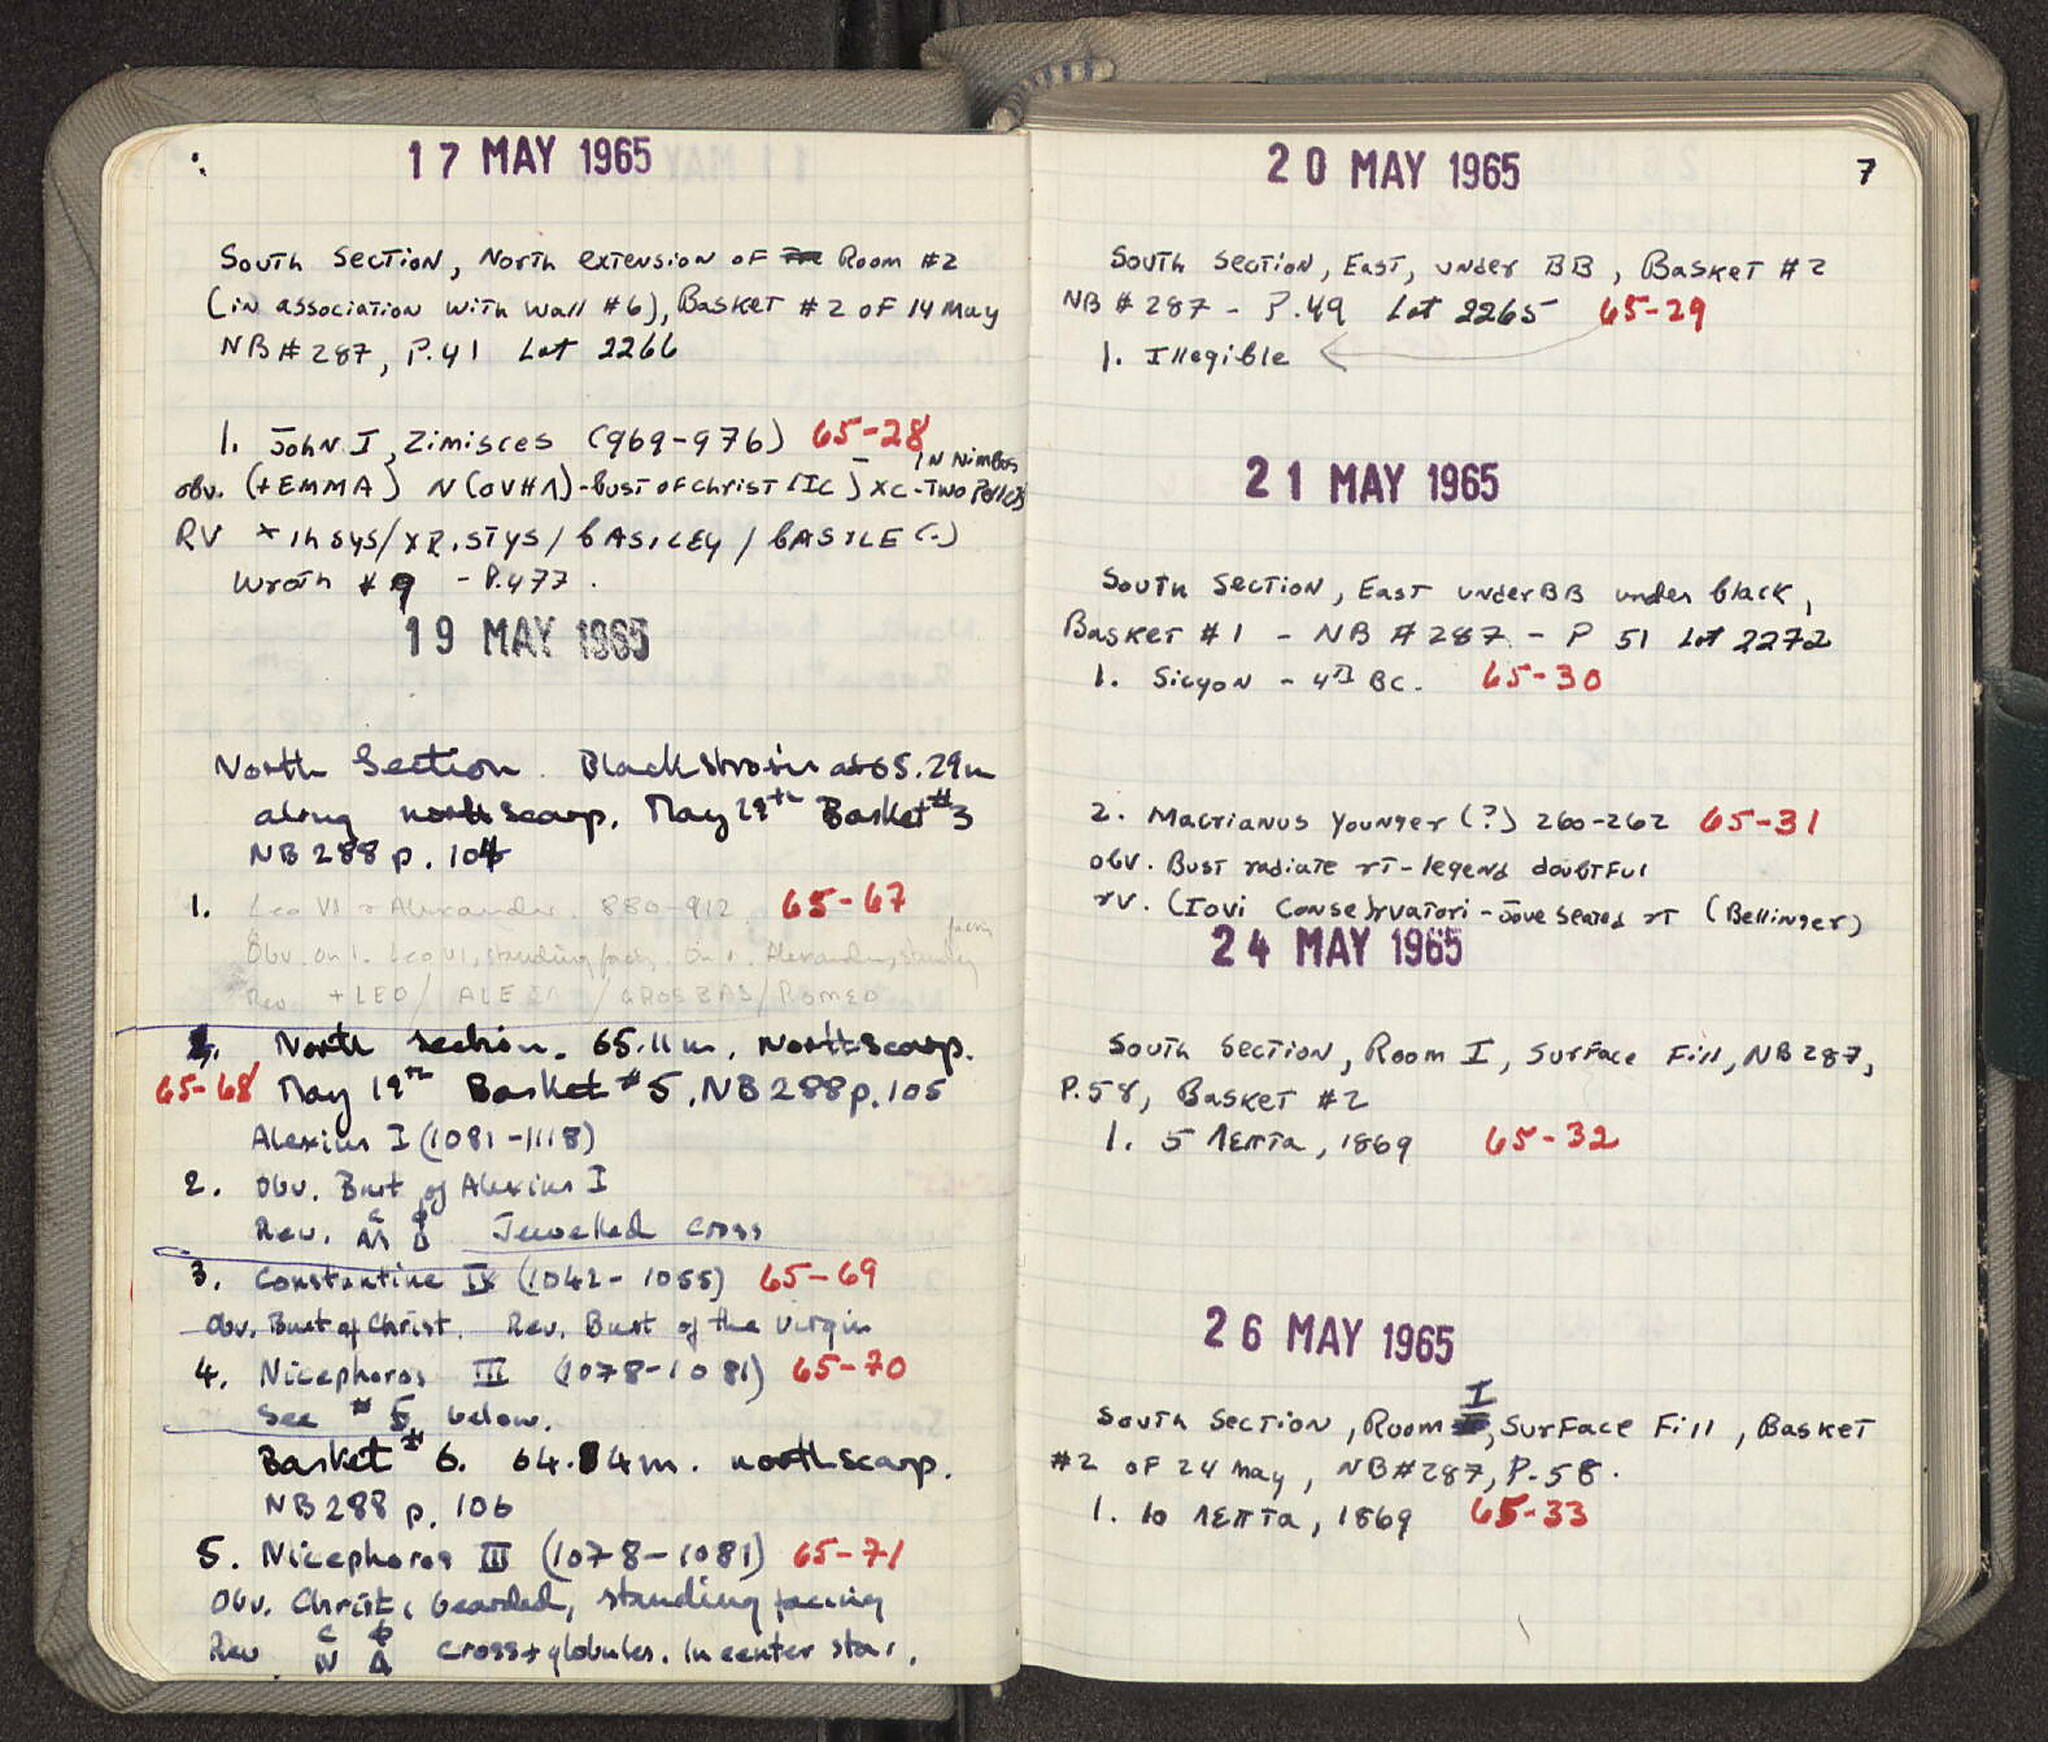 17 MAY 1965
South Section, North extension of Room #2
(in association with wall #6), Basket #2 of 14 May
NB # 287, P.41 Lot 2266
1. John I, Zimisces (969-976) 65-28
in nimbus
obv. (+EMMA) N(OVHΛ)-bust of Christ [IC] XC-Two Pellets
RV + IhSYS/XR.STYS/bASILEY/bASILE(-)
Wroth #9 - P.477.
19 MAY 1965
North Section. Black strosis at 65.29m
along north scarp. May 19th Basket #3
NB 288 p. 104
1. Leo VI & Alexander. 880-912. 65-67
facing
Obv. On l. Leo VI, standing facing. On r. Alexander, standing
Rev. +LEO/ ALE / GROSBAS/ROMEO
North section. 65.11m. North scarp.
65-68 May 19th Basket #5, NB 288 p. 105
Alexius I (1081-1118)
2. Obv. Bust of Alexius I
C Φ
Rev. Δ Jewelled cross
3. Constantine IX (1042-1055) 65-69
Obv. Bust of Christ. Rev. Bust of the Virgin
4. Nicephoros III (1078-1081) 65-70
See #5 below.
Basket #6. 64.84m. north scarp.
NB 288 p. 106
5. Nicephoros III (1078-1081) 65-71
Obv. Christ, bearded, standing facing
C Φ
Rev N Δ Cross + globules. In center star.
20 MAY 1965 7
South Section, East, under BB, Basket #2
NB # 287 - P.49 Lot 2265 65-29
1. Illegible
21 MAY 1965
South Section, East under BB under black,
Basket #1 - NB # 287 - P 51 Lot 2272
1. Sicyon - 4th BC. 65-30
2. Macrianus Younger (?) 260-262 65-31
obv. Bust radiate rt - legend doubtful
rv. (Iovi Conse)rvatori - Jove seated rt (Bellinger)
24 MAY 1965
South Section, Room I, Surface Fill, NB 287,
P.58, Basket #2
1. 5 λεπτα, 1869 65-32
26 MAY 1965
I
South Section, Room , Surface Fill, Basket
#2 of 24 May, NB#287, P-58.
1. 10 λεπτα, 1869 65-33